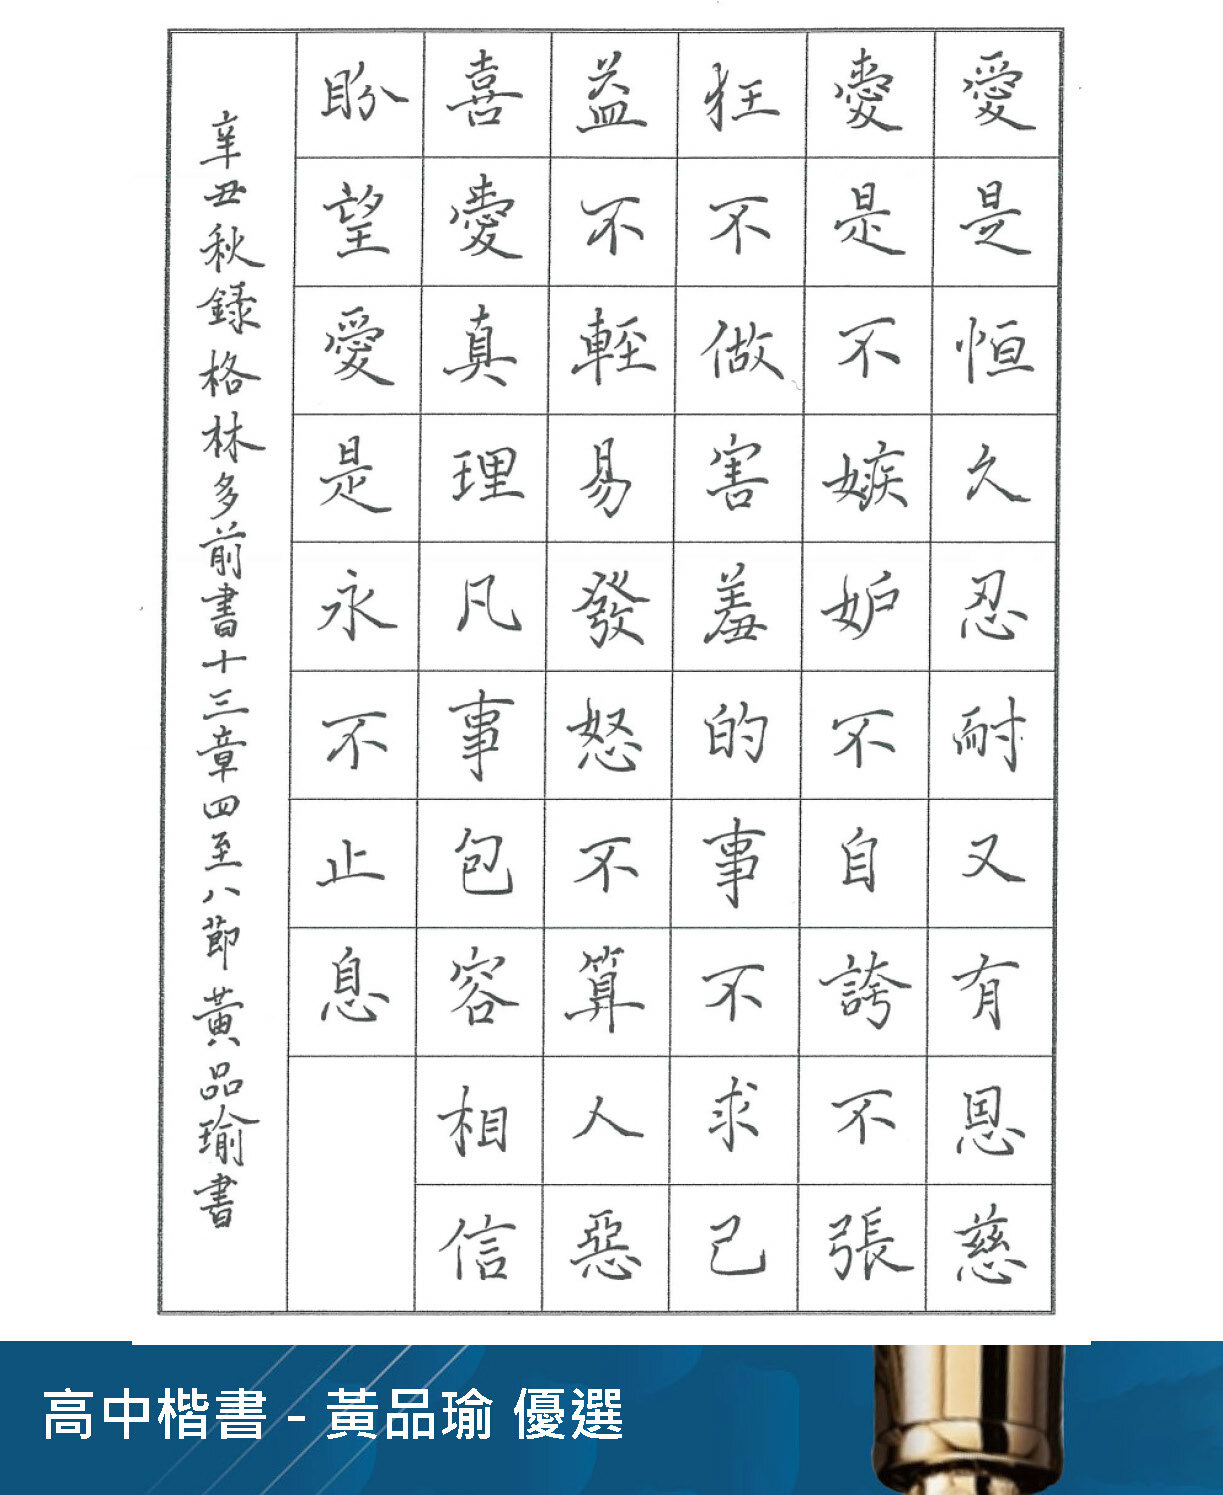 愛是恒久忍耐又有恩慈
愛是不嫉妒不自誇不張
狂不做害羞的事不求己
益不輕易發怒不算人惡
喜愛真理凡事包容相信
盼望愛是永不止息
辛丑秋錄格林多前書十三章四至八節黃品瑜書
高中楷書 - 黃品瑜 優選